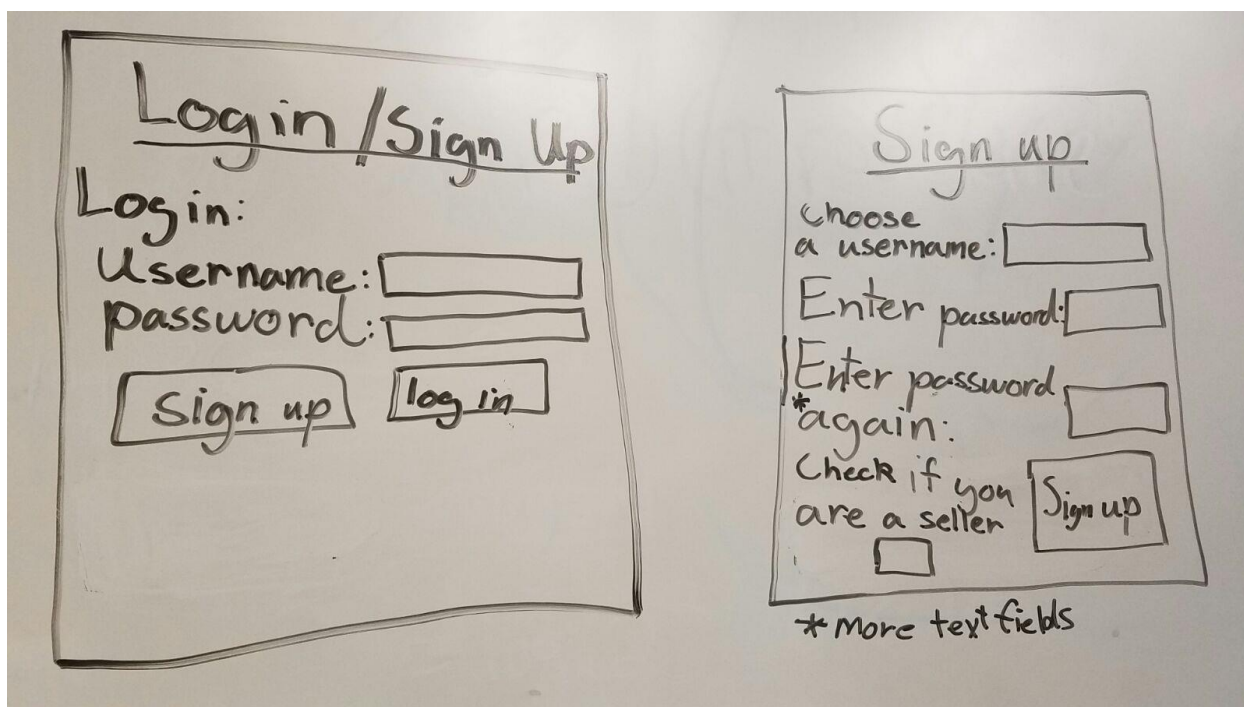 Login / Sign Up
Login:
Username:
password:
Sign up
log in
Sign up
Choose
a username:
Enter password:
Enter password
*again:
Check if you
are a seller
Sign up
* More text fields